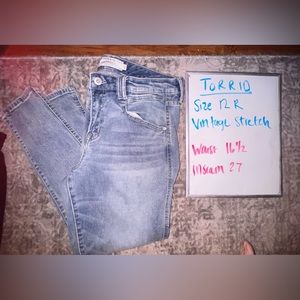 TORRID
Size 12 R
Vintage Stretch
Waist 16 1/2
Inseam 27